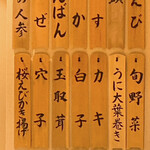 えび
す
か
ぜ
人参
旬野菜
うに大葉巻き
カキ
白子
玉取茸
穴子
桜えびかき揚げ